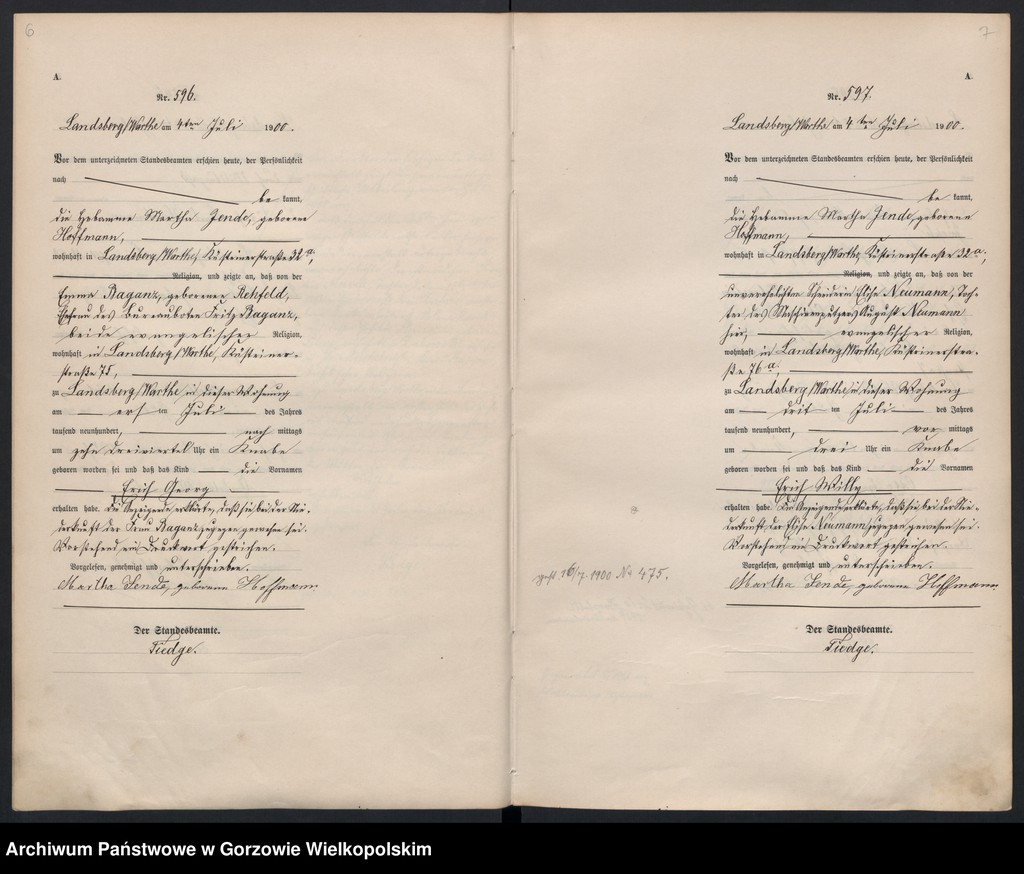 6
A.
Nr. 596.
Landsberg/Warthe am 4ten Juli 1900.
Vor dem unterzeichneten Standesbeamten erschien heute, der Persönlichkeit
nach
be kannt,
die Hebamme Martha Jende, geborene
Hoffmann,
wohnhaft in Landsberg/Warthe, Küstrinerstraße 32a,
Religion, und zeigte an, daß von der
Emma Baganz, geborenen Rehfeld,
Ehefrau des Bureauboten Fritz Baganz,
beide evangelischer Religion,
wohnhaft in Landsberg/Warthe, Küstriner-
straße 75,
zu Landsberg/Warthe in dieser Wohnung
am ersten Juli des Jahres
tausend neunhundert, nach mittags
um zehn dreiviertel Uhr ein Knabe
geboren worden sei und daß das Kind die Vornamen
Erich Georg
erhalten habe. Die Anzeigende erklärte, daß sie bei der Nie-
derkunft der Frau Baganz zugegen gewesen sei.
Vorstehend ein Druckwort gestrichen.
Vorgelesen, genehmigt und unterschrieben.
Martha Jende, geborene Hoffmann.
Der Standesbeamte.
Tiedge.
7
A.
Nr. 597.
Landsberg/Warthe am 4ten Juli 1900.
Vor dem unterzeichneten Standesbeamten erschien heute, der Persönlichkeit
nach
be kannt,
die Hebamme Martha Jende, geborene
Hoffmann,
wohnhaft in Landsberg/Warthe, Küstrinerstraße 32a,
Religion, und zeigte an, daß von der
unverehelichten Elise Neumann, Toch-
ter des Maschinenputzers August Neumann
hier, evangelischer Religion,
wohnhaft in Landsberg/Warthe, Küstrinerstra-
ße 76a.
zu Landsberg/Warthe in dieser Wohnung
am dritten Juli des Jahres
tausend neunhundert, vor mittags
um drei Uhr ein Knabe
geboren worden sei und daß das Kind die Vornamen
Erich Willy
erhalten habe. Die Anzeigende erklärte, daß sie bei der Nie-
derkunft der Elise Neumann zugegen gewesen sei.
Vorstehend ein Druckwort gestrichen.
Vorgelesen, genehmigt und unterschrieben.
Martha Jende, geborene Hoffmann.
Der Standesbeamte.
Tiedge.
16/7. 1900 No 475.
Archiwum Państwowe w Gorzowie Wielkopolskim